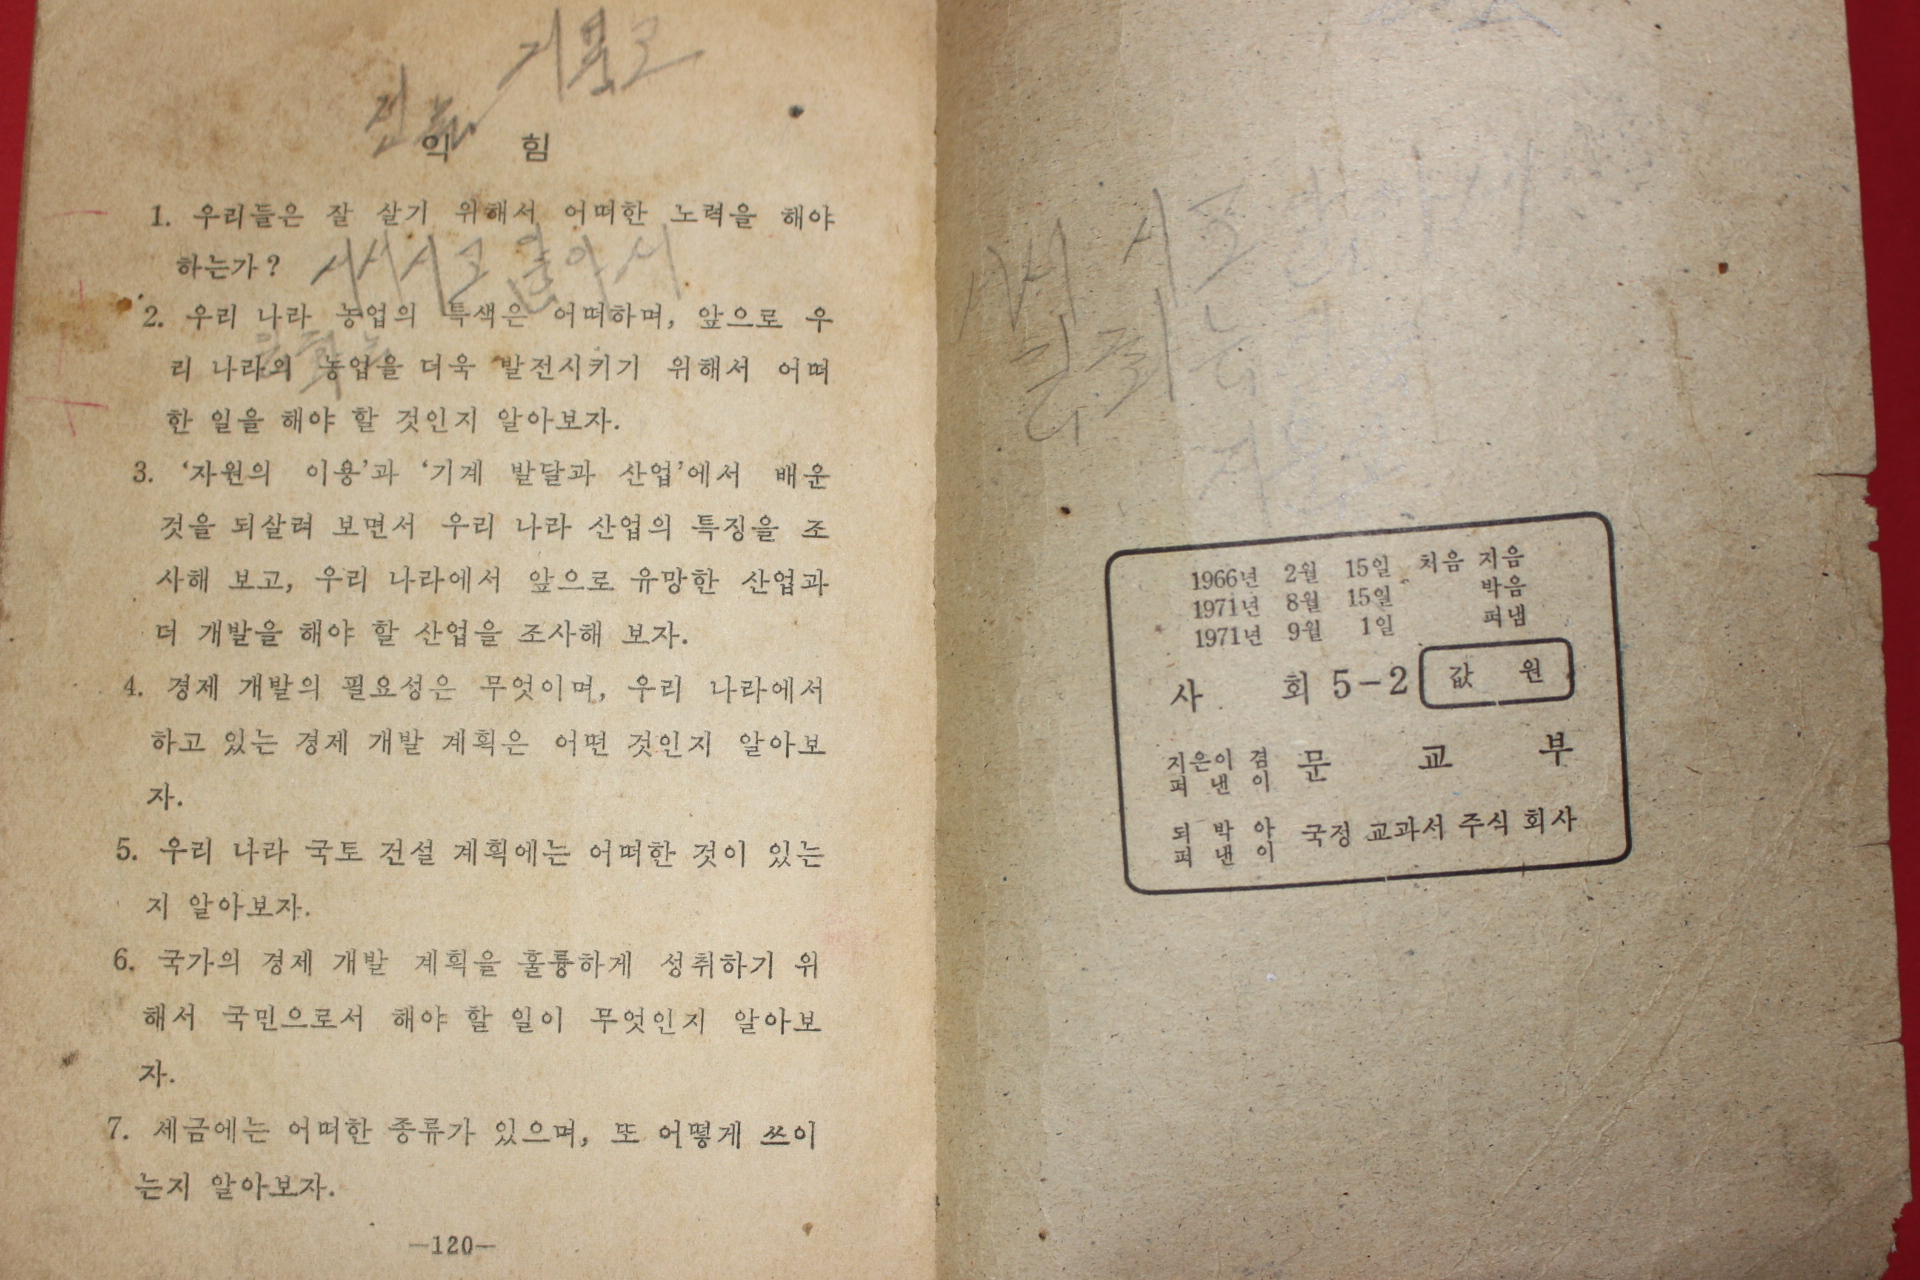 익 힘
1. 우리들은 잘 살기 위해서 어떠한 노력을 해야
하는가?
2. 우리 나라 농업의 특색은 어떠하며, 앞으로 우
리 나라의 농업을 더욱 발전시키기 위해서 어떠
한 일을 해야 할 것인지 알아보자.
3. ‘자원의 이용’과 ‘기계 발달과 산업’에서 배운
것을 되살려 보면서 우리 나라 산업의 특징을 조
사해 보고, 우리 나라에서 앞으로 유망한 산업과
더 개발을 해야 할 산업을 조사해 보자.
4. 경제 개발의 필요성은 무엇이며, 우리 나라에서
하고 있는 경제 개발 계획은 어떤 것인지 알아보
자.
5. 우리 나라 국토 건설 계획에는 어떠한 것이 있는
지 알아보자.
6. 국가의 경제 개발 계획을 훌륭하게 성취하기 위
해서 국민으로서 해야 할 일이 무엇인지 알아보
자.
7. 세금에는 어떠한 종류가 있으며, 또 어떻게 쓰이
는지 알아보자.
—120—
1966년 2월 15일 처음 지음
1971년 8월 15일 박음
1971년 9월 1일 펴냄
사 회 5-2 값 원
지은이 겸
펴 낸 이
문 교 부
되 박 아
펴 낸 이
국정 교과서 주식 회사